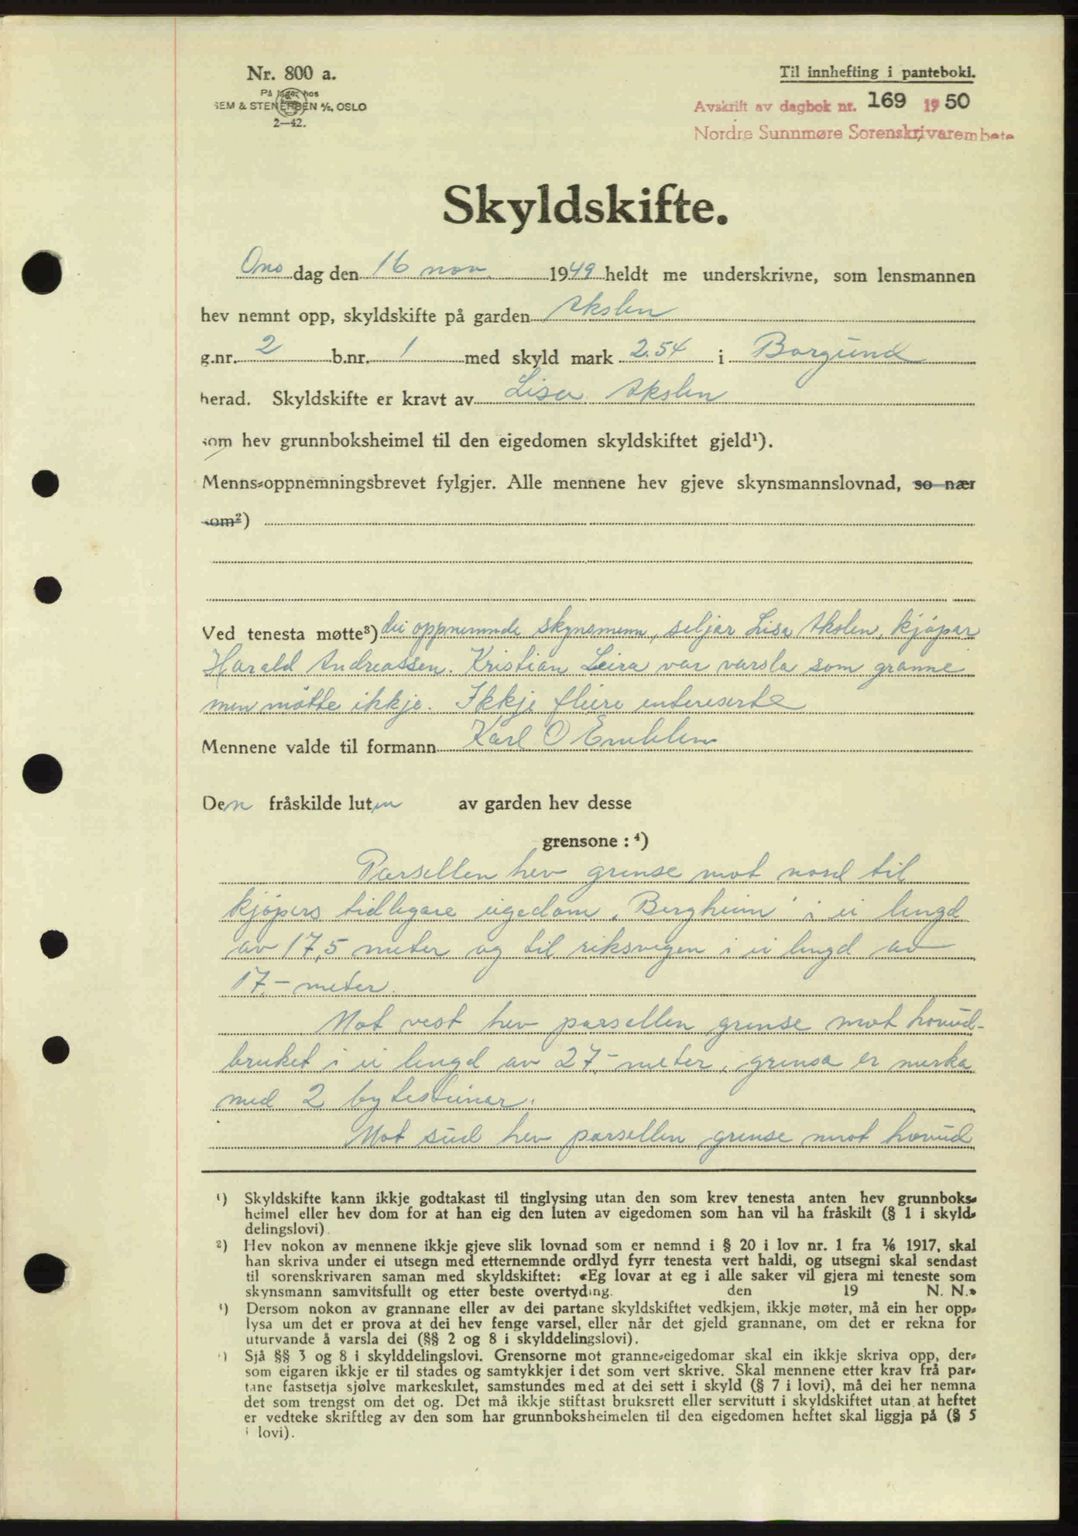 Nr. 800 a.
På lager hos
SEM & STENERSEN A/S, OSLO
2—42.
Til innhefting i panteboki.
Avskrift av dagbok nr. 169 1950
Nordre Sunnmøre Sorenskrivarembete
Skyldskifte.
Ons dag den 16 nov 1949 heldt me underskrivne, som lensmannen
hev nemnt opp, skyldskifte på garden Akslen
g.nr. 2 b.nr. 1 med skyld mark 2.54 i Borgund
herad. Skyldskifte er kravt av Lisa Akslen
som hev grunnboksheimel til den eigedomen skyldskiftet gjeld¹).
Menns-oppnemningsbrevet fylgjer. Alle mennene hev gjeve skynsmannslovnad, so nær
som²)
Ved tenesta møtte³) dei oppnemnde skynsmenn, seljar Lisa Akslen, kjøpar
Harald Andreassen. Kristian Leira var varsla som granne
men møtte ikkje. Ikkje fleire intereserte
Mennene valde til formann Karl O Emblem
Den fråskilde luten av garden hev desse
grensone : ⁴)
Parsellen hev grense mot nord til
kjøpers tidlegare eigedom "Bergheim" i ei lengd
av 17,5 meter og til riksvegen i ei lengd av
17,- meter.
Mot vest hev parsellen grense mot hovud-
bruket i ei lengd av 27,- meter, grensa er merka
med 2 bytesteinar.
Mot sud hev parsellen grense mot hovud
¹) Skyldskifte kann ikkje godtakast til tinglysing utan den som krev tenesta anten hev grunnboks-
heimel eller hev dom for at han eig den luten av eigedomen som han vil ha fråskilt (§ 1 i skyld-
delingslovi).
²) Hev nokon av mennene ikkje gjeve slik lovnad som er nemnd i § 20 i lov nr. 1 fra 1/6 1917, skal
han skriva under ei utsegn med etternemnde ordlyd fyrr tenesta vert haldi, og utsegni skal sendast
til sorenskrivaren saman med skyldskiftet: «Eg lovar at eg i alle saker vil gjera mi teneste som
skynsmann samvitsfullt og etter beste overtyding. den 19 N. N.»
³) Dersom nokon av grannane eller av dei partane skyldskiftet vedkjem, ikkje møter, må ein her opp-
lysa um det er prova at dei hev fenge varsel, eller når det gjeld grannane, om det er rekna for
uturvande å varsla dei (§§ 2 og 8 i skylddelingslovi).
⁴) Sjå §§ 3 og 8 i skylddelingslovi. Grensorne mot granne-eigedomar skal ein ikkje skriva opp, der-
som eigaren ikkje er til stades og samtykkjer i det som vert skrive. Skal mennene etter krav frå par-
tane fastsetja sjølve markeskilet, samstundes med at dei sett i skyld (§ 7 i lovi), må dei her nemna
det som trengst om det og. Det må ikkje stiftast bruksrett eller servitutt i skyldskiftet utan at heftet
er vedteke skriftleg av den som har grunnboksheimelen til den eigedomen heftet skal liggja på (§ 5
i lovi).